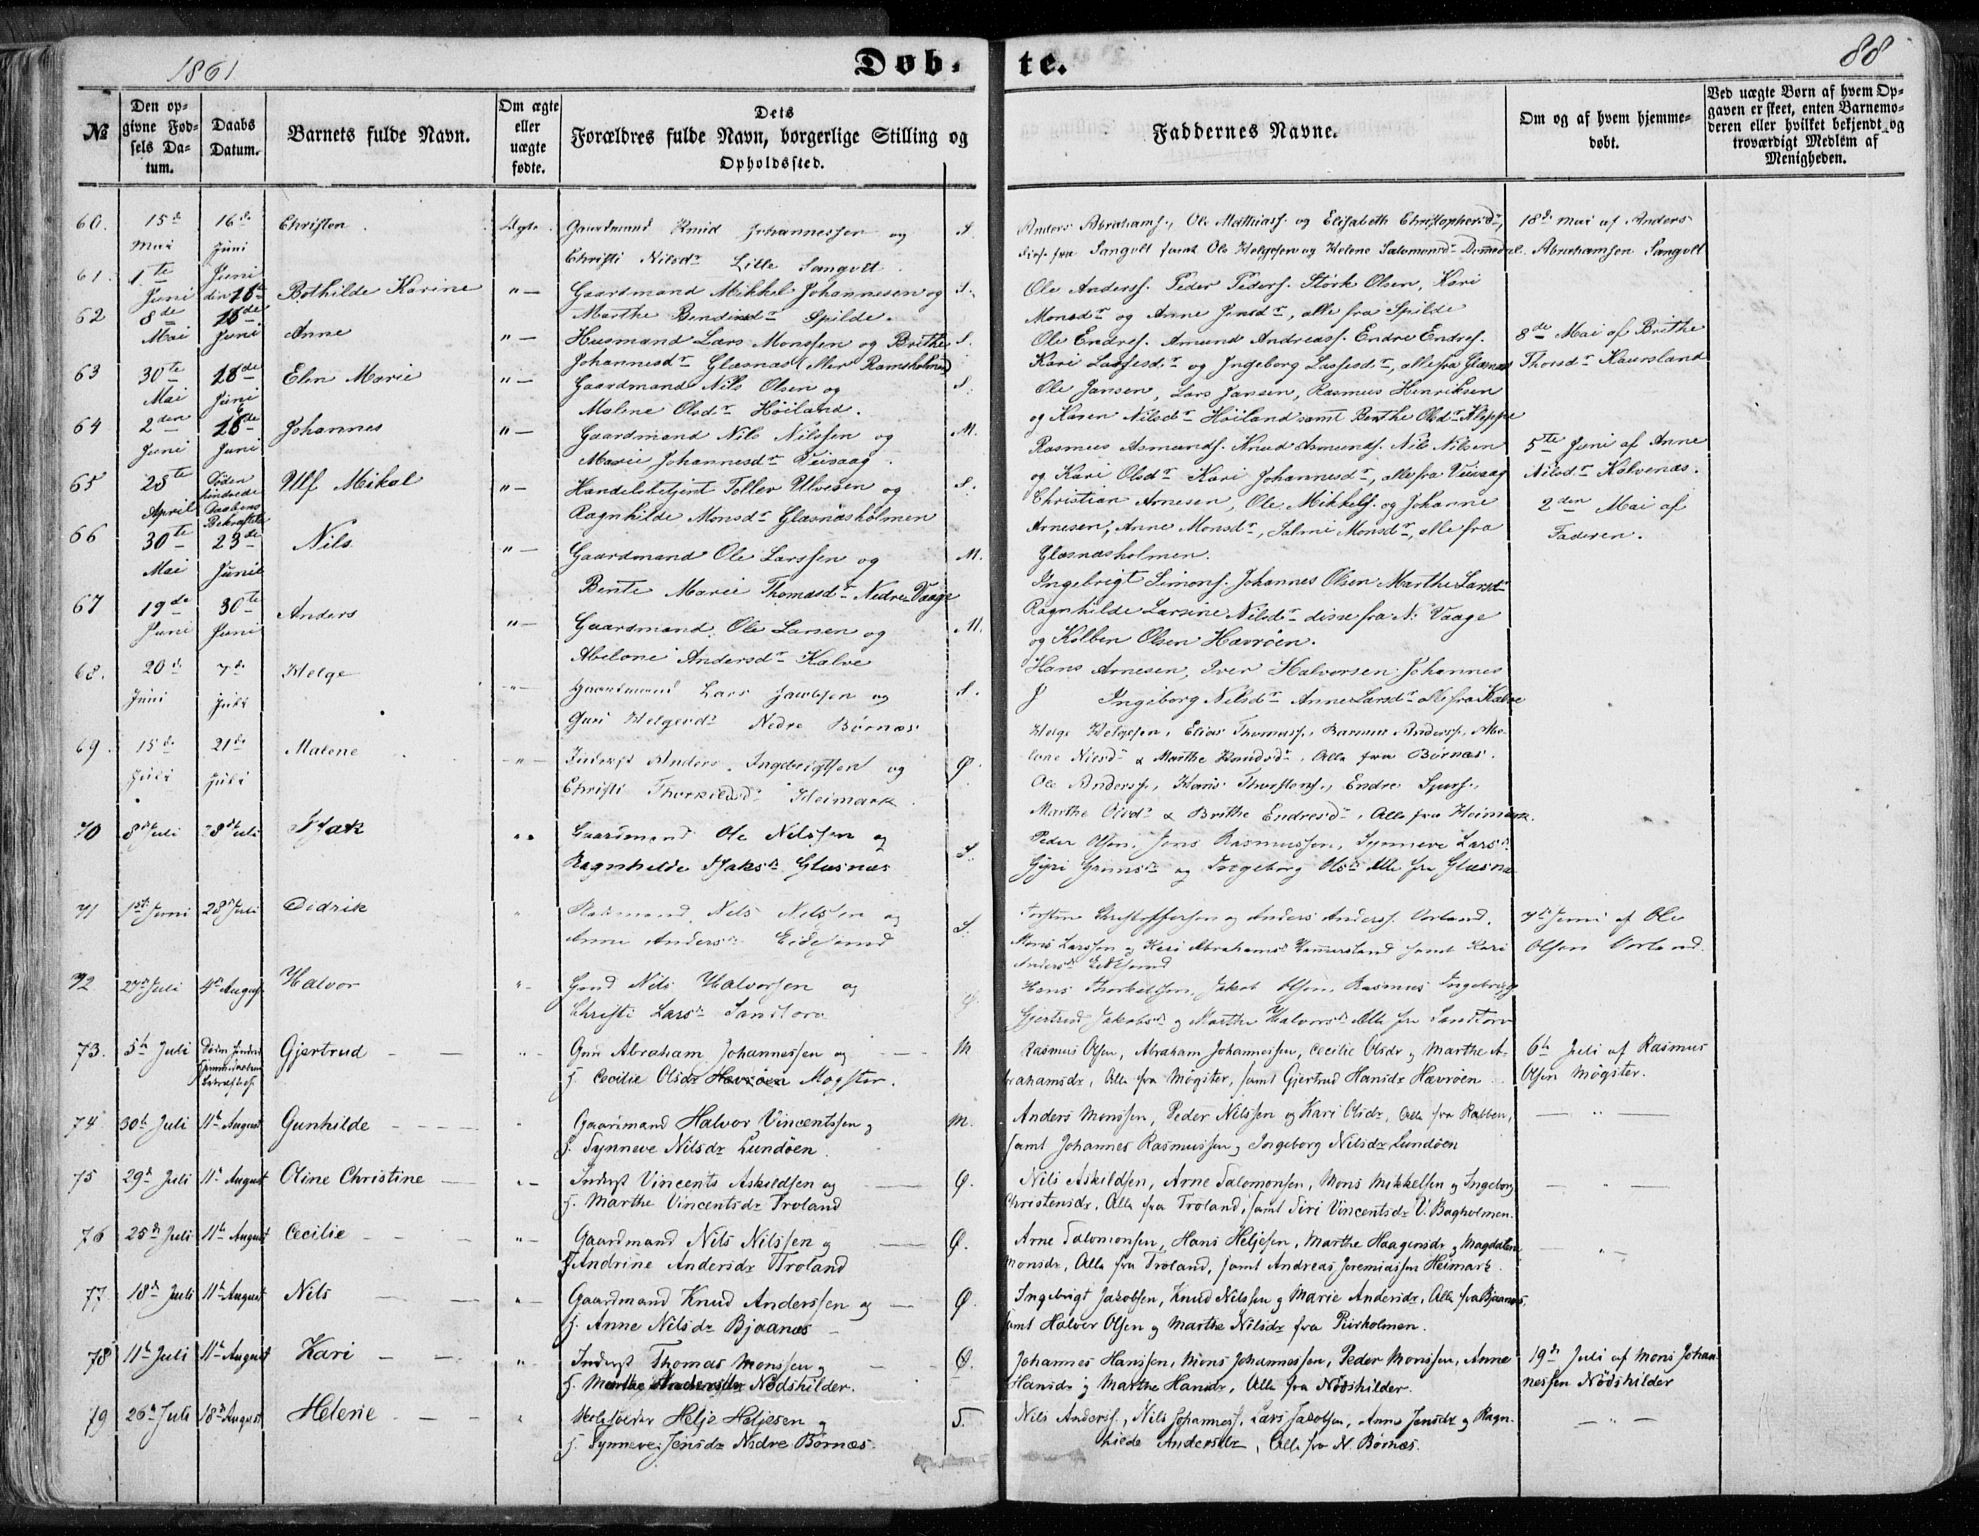 1861
Døb- te.
88
№
Den opgivne Fødsels Datum.
Daabs Datum.
Barnets fulde Navn.
Om ægte eller uægte fødte.
Dets Forældres fulde Navn, borgerlige Stilling og Opholdssted.
Faddernes Navne.
Om og af hvem hjemmedøbt.
Ved uægte Børn af hvem Opgaven er skeet, enten Barnemoderen eller hvilket bekjendt og troværdigt Medlem af Menigheden.
60. 15de Mai 16de Juni Christen Ægte Gaardmand Knud Johannessen og S.
Christi Nilsdr Lille Sangolt.
Anders Abrahams., Ole Mathiass. og Elisabeth Christophersdr,
fra Sangolt samt Ole Helgesen og Helene Salomonsdr
18de Mai af Anders
Abrahamsen Sangolt
61. 1te Juni Juni den 16de Bothilde Karine " — Gaardmand Mikkel Johannesen og S.
Marthe Bendiksdr Spilde.
Ole Anderss. Peder Peders. Størk Olsen, Kari
Monsdr og Anne Jensdr, alle fra Spilde
62 8de Mai 16de Juni Anne " — Husmand Lars Monssen og Brithe S.
Johannesdr Glæsnæs (eller Ramsholmen)
Ole Endres. Amund Andreass. Endre Endres.
Kari Lassesdr og Ingeborg Lassesdr, alle fra Glæsnæs
8de Mai af Brithe
Thorsdr Kaursland
63 30te Mai 16de Juni Elen Marie " — Gaardmand Nils Olsen og S.
Malene Olsdr Høiland.
Ole Jansen, Lars Jansen, Rasmus Henriksen
og Karen Nilsdr Høiland samt Berthe Olsdr Kleppe
64 2den Juni 16de Juni Johannes " — Gaardmand Nils Nilssen og M.
Marie Johannesdr Veisaag.
Rasmus Asmunds. Knud Asmunds. Nils Nilsen
og Kari Olsdr Kari Johannesdr, alle fra Veisaag
5te Juni af Anne
Nilsdr Kalvenæs.
65 25te April Døden hindrede Daabens Bekræftelse Ulf Mikal " — Handelsbetjent Toller Ulvesen og S.
Ragnhilde Monsdr Glæsnæsholmen
Christian Arnesen, Ole Mikkels. og Johanne
Arnesen, Anne Monsdr, Salmi Monsdr, alle fra
Glæsnæsholmen.
2den Mai af
Faderen.
66 30te Mai 23de Junii Nils " — Gaardmand Ole Larssen og M.
Bente Marie Thomasdr Nedre Vaage
Ingebrigt Simons. Johannes Olsen Marthe Larsdr
Ragnhilde Larsine Nilsdr disse fra N. Vaage
og Kolben Olsen Hævrøen.
67 19de Juni 30te Juni Anders " — Gaardmand Ole Larsen og M.
Abelone Andersdr Kalve
Hans Arnesen, Iver Halvorsen Johannes
J Ingeborg Nilsdr Anne Larsdr alle fra Kalve
68. 20de Juni 7de Juli Helge " — Gaardmand Lars Jacobsen og S.
Guri Helgesdr Nedre Børnæs
Helge Helgesen, Elias Thomass., Rasmus Anderss., Malene
Nilsdr & Marthe Knudsdr. Alle fra Børnæs.
69. 15de Juli 21de Juli Malene " — Inderst Anders Ingebrigtsen og Ø.
Christi Thorkildsdr Heimark.
Ole Anderss., Hans Thorstens., Endre
Marthe Olsdr & Brithe Endresdr, Alle fra Heimark.
70 8de Juli 28de Juli Isak " Gaardmand Ole Nilssen og S.
Ragnhilde Isaksdr Glæsnæs
Peder Olsen, Jens Rasmussen, Synneve Larsdr
Gjøri Grimsdr og Ingeborg Olsdr Alle fra Glæsnæs
71 1ste Juni 28de Juli Didrik " Nils Nilssen og S.
Anne Andersdr Eidesund
Torsten Christoffersen og Anders Anderss. Vorland.
Mons Larssen og Kari Abrahamsdr samt Kari
Andersdr Eidesund
7de Juni af Ole
Olsen Vorland.
72 27de Juli 4de August Halvor " - Gmd Nils Halvorsen og Ø.
Christi Larsdr Sandtorv
Hans Thorkelsen, Jakob Olsen, Rasmus Ingebrigts
Gjertrud Jakobsdr og Marthe Halvorsdr Alle fra Sandtorv
73. 5te Juli Døden Gjertrud — — Gmd Abraham Johannessen og — M
H. Cecilie Olsdr Hævrøen Mogster.
Rasmus Olsen, Abraham Johannessen, Cecilie Olsdr og Marthe A-
brahamsdr, Alle fra Møgster, samt Gjertrud Hansdr Hævrøen
6te Juli af Rasmus
Olsen Møgster.
74. 30te Juli 11te August Gunhilde — - - - Gaardmand Halvor Vincentssen og M.
H. Synneve Nilsdr Lundøen.
Anders Monssen, Peder Nilssen og Kari Olsdr, Alle fra Rabben,
samt Johannes Rasmussen og Ingeborg Nilsdr Lundøen
— " —
75 29de Juli 11te August Oline Christine — " — Inderst Vincents Askildsen og — Ø.
H. Marthe Vincentsdr Troland
Nils Askildsen, Arne Salomonsen, Mons Mikkelsen og Ingeborg
Christensdr, Alle fra Troland, samt Siri Vincentsdr V. Bagholmen.
— " —
76 25de Juli 11te August Cecilie - - - " — Gaardmand Nils Nilssen og — Ø.
H. Andrine Andersdr Troland
Arne Salomonsen, Hans Heljesen, Marthe Haagensdr og Magdalene
Monsdr, Alle fra Troland, samt Andreas Jeremiassen Heimark.
— " —
77. 18de Juli 11te August Nils — — " — Gaardmand Knud Anderssen og — Ø.
H. Anne Nilsdr Bjaanæs —
Ingebrigt Jacobsen, Knud Nilssen og Marie Andersdr, Alle fra Bjaanæs,
samt Halvor Olsen og Marthe Nilsdr fra Pirholmen.
78 11te Juli 11te August Kari — — " Inderst Thomas Monssen og — Ø.
H. Marthe Andersdr Nødshilder.
Johannes Hanssen, Mons Johannessen, Peder Monssen, Anne
Hansdr og Marthe Hansdr, Alle fra Nødshilder.
19de Juli af Mons Johan-
nessen Nødshilder
79 26de Juli 18de August Helene — - — " Helje Heljesen og S.
H. Synneve Jensdr Nedre Børnæs.
Nils Anderss., Nils Johanness., Lars Jacobsen, Anna Jensdr og Ragn-
hilde Andersdr, Alle fra N. Børnæs.
— " —